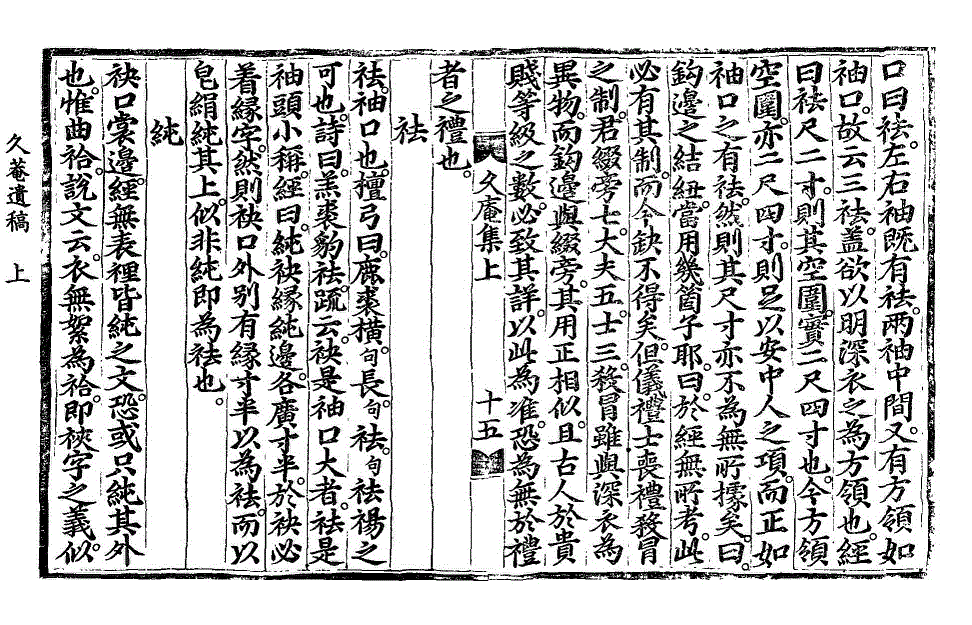 口曰袪。左右袖既有袪。兩袖中間。又有方領如
袖口。故云三袪。蓋欲以明深衣之為方領也。經
曰袪尺二寸。則其空圍。實二尺四寸也。今方領
空圍。亦二尺四寸。則足以安中人之項。而正如
袖口之有袪。然則其尺寸亦不為無所據矣。曰。
鈎邊之結紐。當用幾箇子耶。曰。於經無所考。此
必有其制。而今缺不得矣。但儀禮士喪禮。䅇冒
之制。君綴旁七。大夫五。士三。䅇冒雖與深衣為
異物。而鈎邊與綴旁。其用正相似。且古人於貴
賤等級之數。必致其詳。以此為准。恐為無於禮
久庵集上
十五
者之禮也。
袪
袪。袖口也。檀弓曰。鹿裘橫。句長。句袪。句袪裼之
可也。詩曰。羔裘豹袪。疏云。袂是袖口大者。袪是
袖頭小稱。經曰。純袂緣純邊。各廣寸半。於袂必
着緣字。然則袂口外別有緣寸半以為袪。而以
皂絹純其上。似非純即為袪也。
純
袂口裳邊。經無表裡皆純之文。恐或只純其外
也。惟曲袷。說文云。衣無絮為袷。即裌字之義。似
久菴遺稿 上